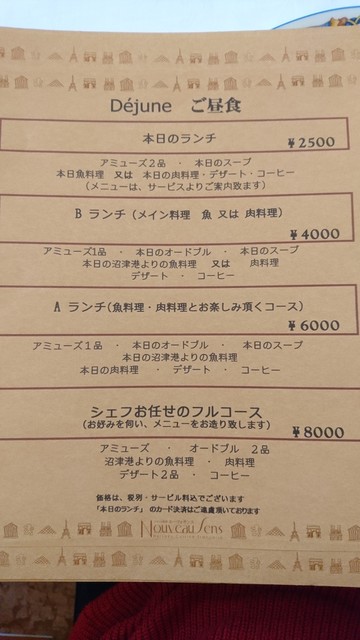 Déjune ご昼食
本日のランチ
¥2500
アミューズ2品 ・ 本日のスープ
本日魚料理 又は 本日の肉料理・デザート・コーヒー
（メニューは、サービスよりご案内致ます）
B ランチ（メイン料理 魚 又は 肉料理）
¥4000
アミューズ1品 ・ 本日のオードブル ・ 本日のスープ
本日の沼津港よりの魚料理 又は 肉料理
デザート ・ コーヒー
A ランチ（魚料理・肉料理とお楽しみ頂くコース）
¥6000
アミューズ1品 ・ 本日のオードブル ・ 本日のスープ
本日の沼津港よりの魚料理
本日の肉料理 ・ デザート ・ コーヒー
シェフお任せのフルコース
（お好みを伺い、メニューをお造り致します）
¥8000
アミューズ ・ オードブル 2品
沼津港よりの魚料理 ・ 肉料理
デザート2品 ・ コーヒー
価格は、税別・サービル料込でございます
「本日のランチ」 のカード決済はご遠慮頂いております
Nouveau Sens